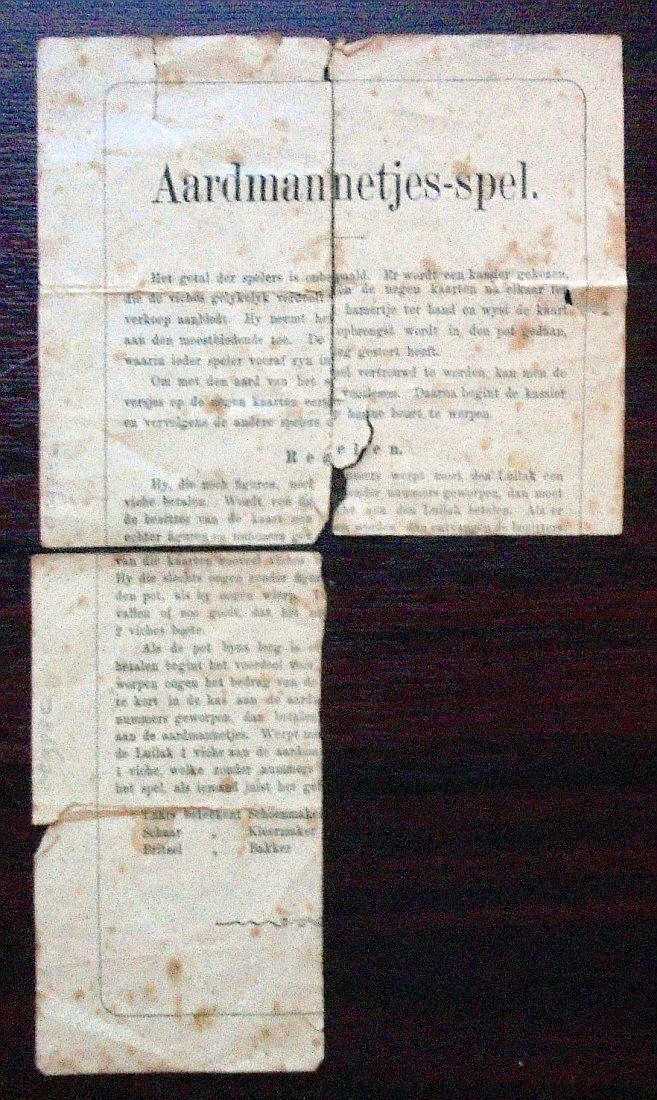 Aardmannetjes-spel.
Het getal der spelers is onbepaald. Er wordt een kassier gekozen,
die de viches gelykelyk verdeelt de negen kaarten na elkaar ten
verkoop aanbiedt. Hy neemt het hamertje ter hand en wyst de kaart
aan den meestbiedende toe. De opbrengst wordt in den pot gedaan,
waarin ieder speler vooraf zyn gestort heeft.
Om met den aard van het spel vertrouwd te worden, kan men de
versjes op de negen kaarten eerst voorlezen. Daarna begint de kassier
en vervolgens de andere spelers beurt te werpen.
Regelen.
Hy, die noch figuren, noch nummers werpt moet den Luilak een
viche betalen. Wordt een zonder nummers geworpen, dan moet
de bezitter van de kaart een aan den Luilak betalen. Als er
echter figuren en nummers worden, dan ontvangen de bezitters
van die kaarten zooveel viches
Hy die slechts oogen zonder
den pot, als hy oogen wierp.
vallen of zoo gooit, dat het
2 viches boete.
Als de pot byna leeg is
betalen begint het voordeel voor
worpen oogen het bedrag van de
te kort in de kas aan de
nummers geworpen, dan betalen
aan de aardmannetjes. Werpt
de Luilak 1 viche aan de
1 viche, welke zonder nummers
het spel, als iemand juist het
Laars beteekent Schoenmaker
Schaar „ Kleermaker
Britsel „ Bakker